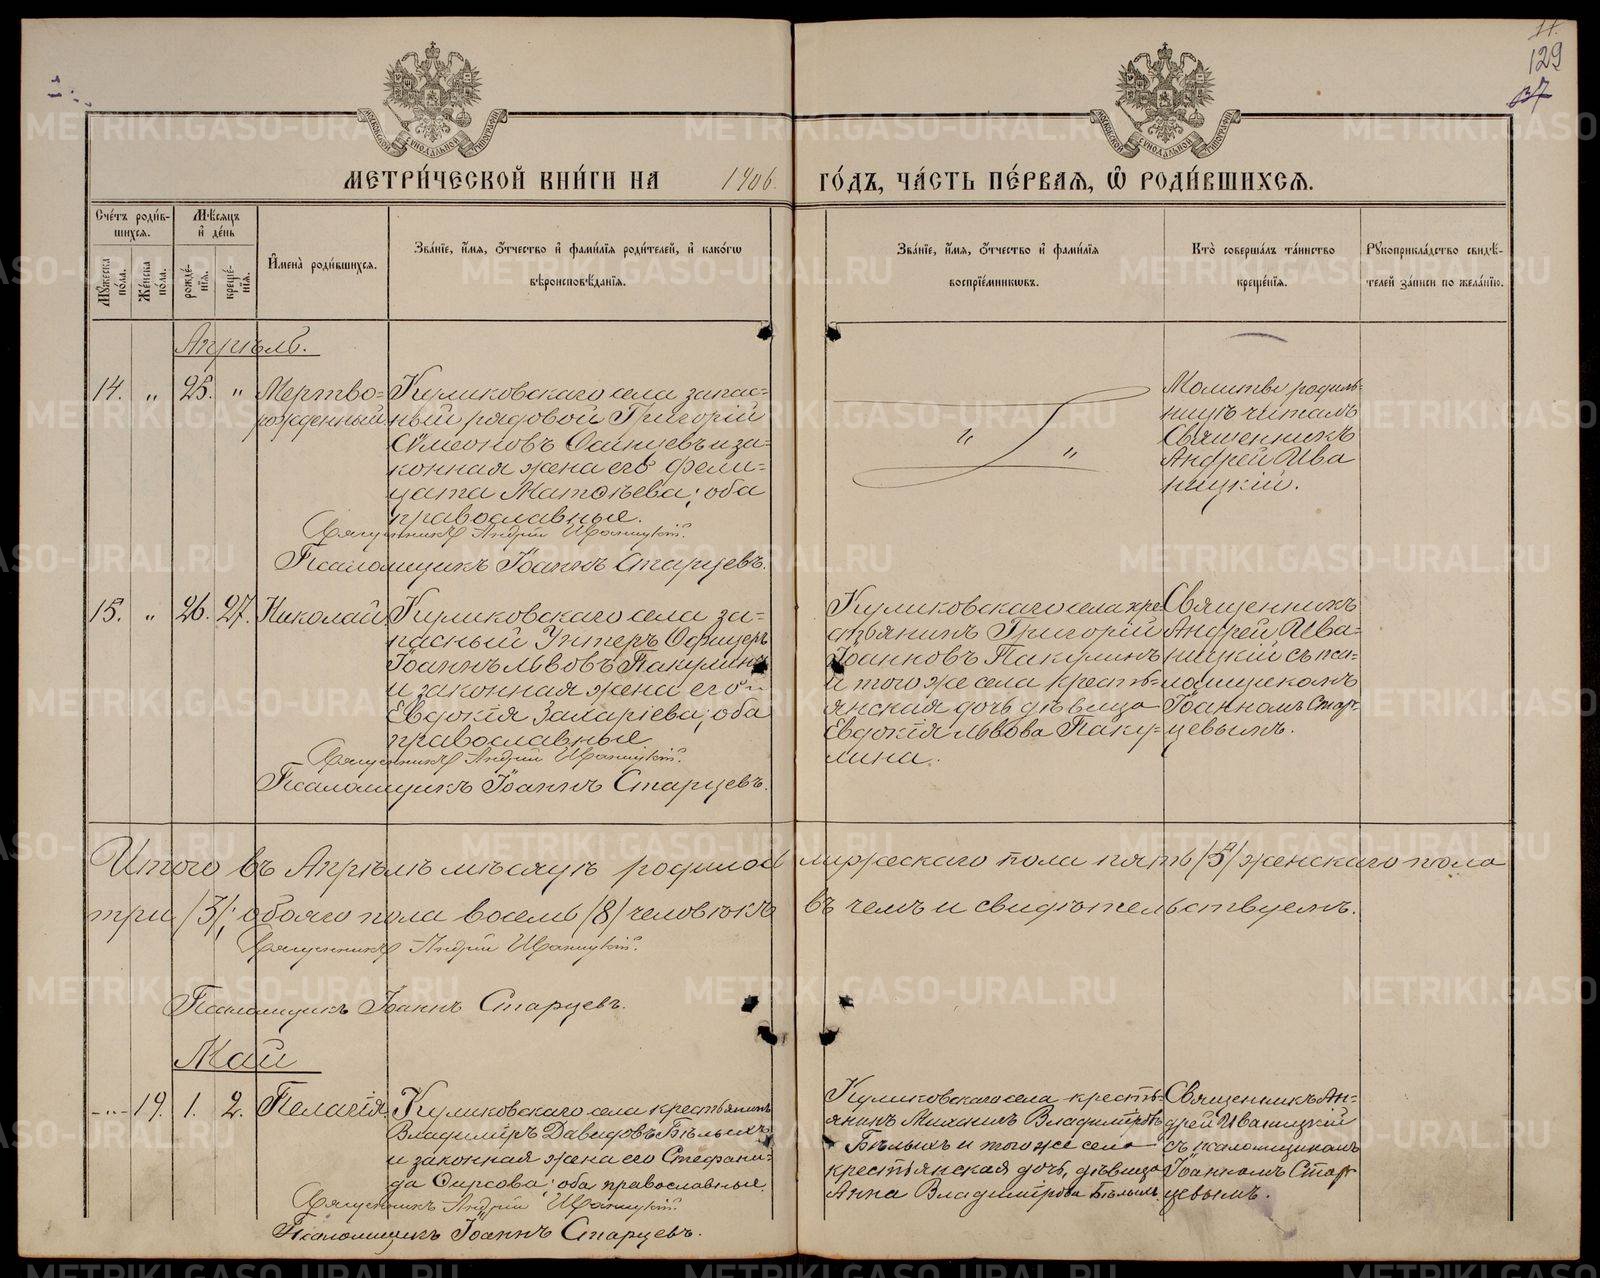 11.
129
37
МЕТРИ́ЧЕСКОЙ КНИ́ГИ НА 1906. ГО́ДЪ, ЧА́СТЬ ПЕ́РВАЯ, Ѡ҆ РОДИ́ВШИХСЯ.
Сче́тъ роди́в-
шихся.
Мѣ́сяцъ
и҆ де́нь
Мꙋ́жеска по́ла.
Же́нска по́ла.
рожде́-
нїя.
креще́-
нїя.
И҆мена̀ роди́вшихся.
Зва́нїе, и҆́мя, ѻ҆́тчество и҆ фами́лїя роди́телей, и҆ како́гѡ
вѣроисповѣ́данїя.
Зва́нїе, и҆́мя, ѻ҆́тчество и҆ фами́лїя
воспрїе́мникѡвъ.
Кто̀ соверша́лъ та́инство
креще́нїя.
Рꙋкоприкла́дство свидѣ́-
телей за́писи по жела́нїю.
Апрѣль.
14. „ 25. „
Мертво-
рожденный
Куликовскаго села запас-
ный рядовой Григорій
Сѵмеоновъ и за-
конная жена его Фели-
цата Матѳѣева; оба
православные.
Священникъ Андрей Иваницкій.
Псаломщикъ Іоаннъ Старцевъ.
„ „
Молитвы родиль-
ницѣ читалъ
Священникъ
Андрей Ива
ницкій.
15. „ 26. 27. Николай
Куликовскаго села за-
пасный Унтеръ Офицеръ
Іоаннъ Львовъ Пакулинъ
и законная жена его
Евдокія Захаріева; оба
православные
Священникъ Андрей Иваницкій.
Псаломщикъ Іоаннъ Старцевъ.
Куликовскаго села кре-
стьянинъ Григорій
Іоанновъ Пакулинъ
и того же села кресть-
янская дочь дѣвица
Евдокія Львова Паку-
лина.
Священникъ
Андрей Ива-
ницкій съ пса-
ломщикомъ
Іоанномъ Стар-
цевымъ.
Итого въ Апрѣлѣ мѣсяцѣ родилось мужескаго пола пять /5/ женскаго пола
три /3/; обоего пола восемь /8/ человѣкъ въ чемъ и свидѣтельствуемъ.
Священникъ Андрей Иваницкій.
Псаломщикъ Іоаннъ Старцевъ.
Май
-„- 19. 1. 2. Пелагія
Куликовскаго села крестьянинъ
Владиміръ Давидовъ Бѣлыхъ
и законная жена его Стефани-
да Сирсова; оба православные.
Священникъ Андрей Иваницкій.
Псаломщикъ Іоаннъ Старцевъ.
Куликовскаго села кресть-
янинъ Михаилъ Владиміровъ
Бѣлыхъ и того же села
крестьянская дочь, дѣвица
Анна Владимірова Бѣлыхъ.
Священникъ Ан-
дрей Иваницкій
съ псаломщикомъ
Іоанномъ Стар
цевымъ.
METRIKI.GASO-URAL.RU